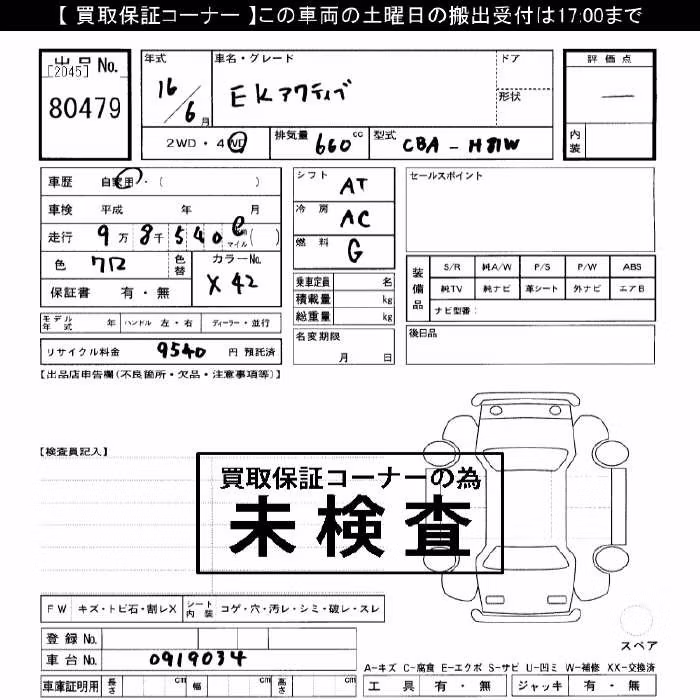 【 買取保証コーナー 】この車両の土曜日の搬出受付は17:00まで
出品 No.
[2045]
80479
年式
16/6月
車名・グレード
EKアクティブ
ドア
形状
評価点
―
内装
2WD・4WD
排気量 660 cc
型式 CBA-H81W
車歴 自家用・( )
車検 平成 年 月
走行 9万8千540 マイル( )
色 クロ
色替
カラーNo. X42
保証書 有・無
シフト AT
冷房 AC
燃料 G
セールスポイント
乗車定員 名
積載量 kg
総重量 kg
装備品
S/R 純A/W P/S P/W ABS
純TV 純ナビ 革シート 外ナビ エアB
ナビ型番:
モデル年式 年 ハンドル 左・右 ディーラー・並行
名変期限 月 日
後日品
リサイクル料金 9540 円 預託済
【出品店申告欄(不良箇所・欠品・注意事項等)】
【検査員記入】
買取保証コーナーの為
未検査
FW キズ・トビ石・割レX
シート内装 コゲ・穴・汚レ・シミ・破レ・スレ
登録 No.
車台 No. 0919034
車庫証明用 長さ cm 幅 cm 高さ cm
スペア
A-キズ C-腐食 E-エクボ S-サビ U-凹ミ W-補修 XX-交換済
工具 有・無 ジャッキ 有・無